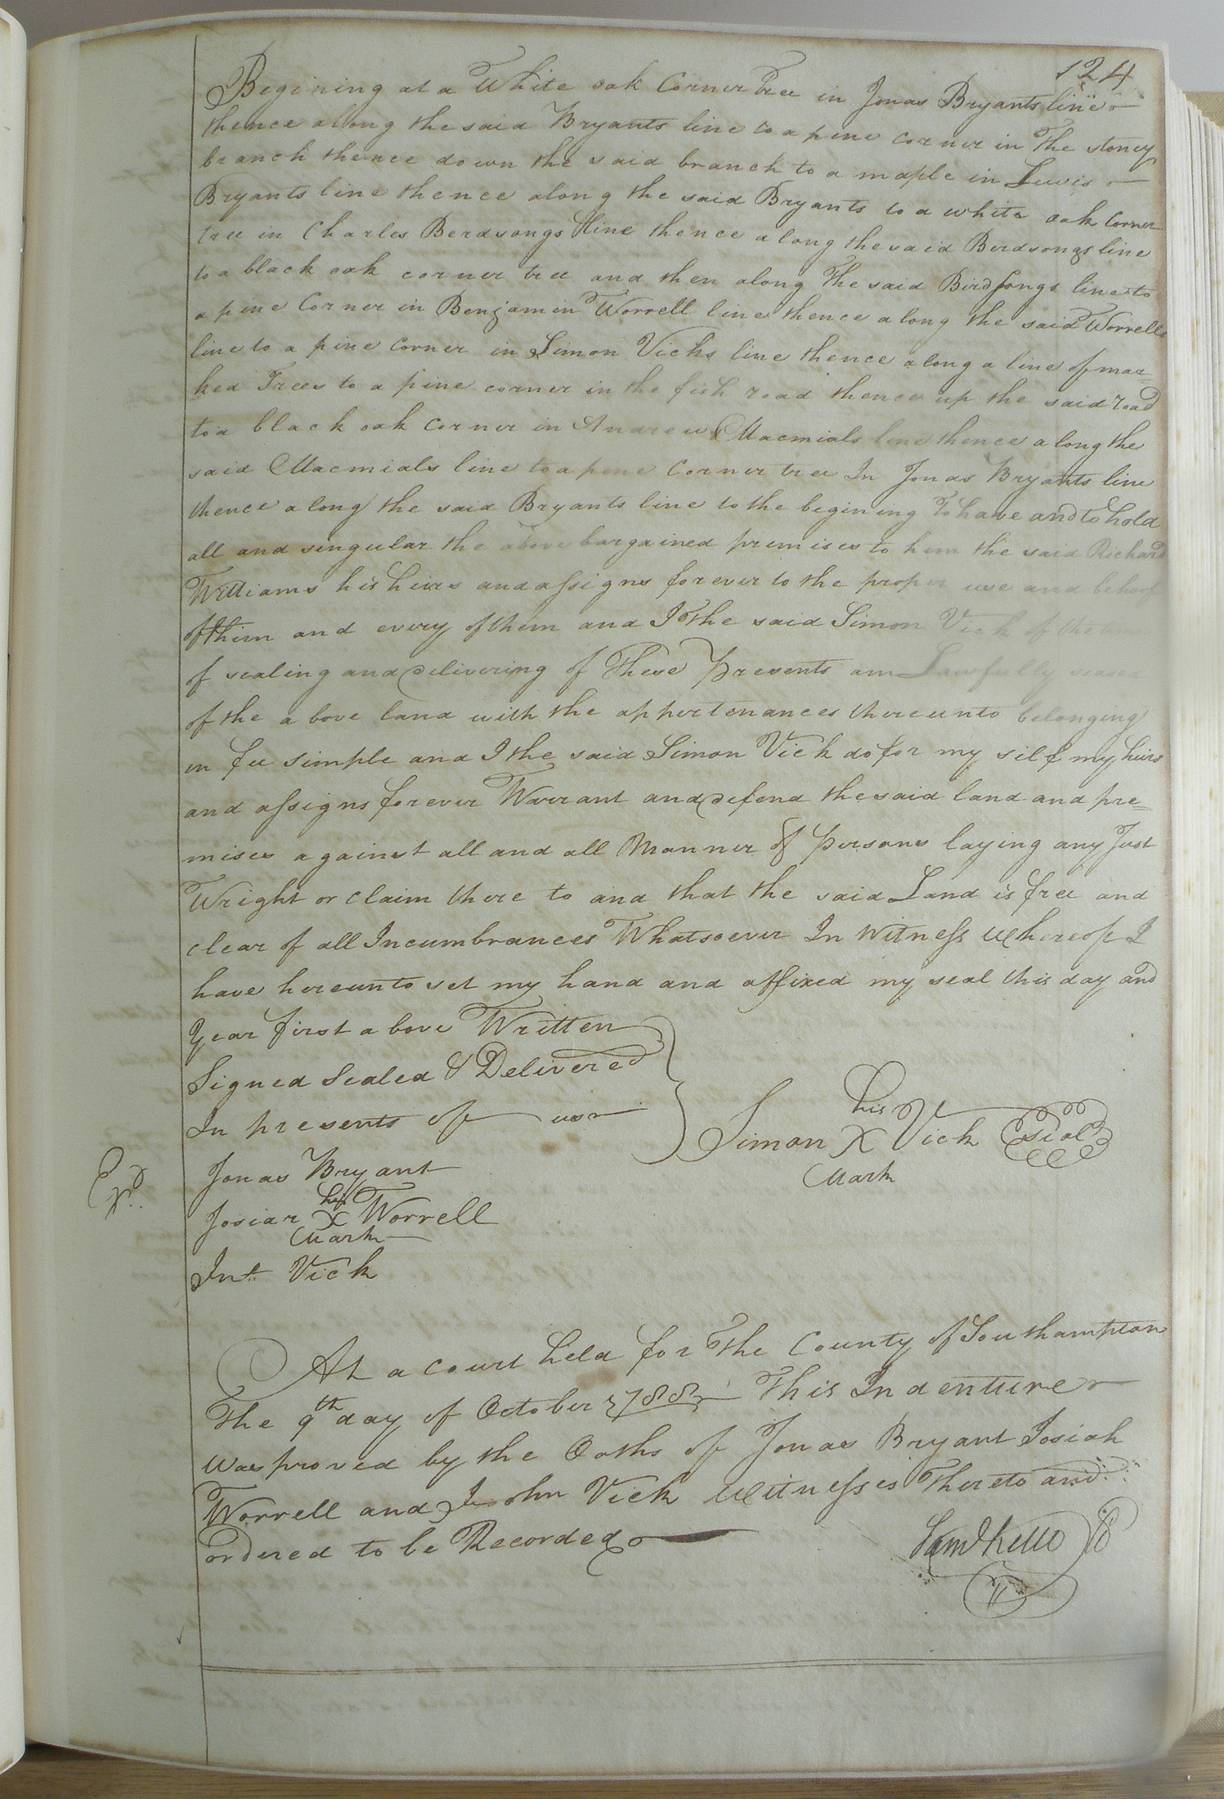 124
Begining at a White oak Corner Tree in Jonas Bryants line
thence along the said Bryants line to a pine corner in The stoney
branch thence down the said branch to a maple in Lewis
Bryants line thence along the said Bryants to a white oak Corner
tree in Charles Berdsongs line thence along the said Berdsongs line
to a black oak corner tree and then along The said Birdsongs line to
a pine Corner in Benjamin Worrell line thence along the said Worrells
line to a pine corner in Simon Vicks line thence along a line of mar
ked Trees to a pine corner in the fish road thence up the said road
to a black oak corner in Andrew Macmials line thence along the
said Macmials line to a pine Corner tree In Jonas Bryants line
thence along the said Bryants line to the begining To have and to hold
all and singular the above bargained premises to him the said Richard
Williams his heirs and assigns forever to the proper use and behoof
of them and every of them and I the said Simon Vick of the
of sealing and delivering of These Presents am Lawfully
of the above land with the appertenances thereunto belonging
in fee simple and I the said Simon Vick do for my self my heirs
and assigns forever Warrant and defend the said land and pre=
mises against all and all Manner of Persons laying any Just
Wright or claim there to and that the said Land is free and
clear of all Incumbrances Whatsoever In Witness Whereof I
have hereunto set my hand and affixed my seal this day and
Year first above Written
Signed Sealed & Delivered
In presents of us
Simon his X mark Vick seal
Jonas Bryant
Josiar his X mark Worrell
Jnt. Vick
At a court held for The County of Southampton
The 9th day of October 1788 This Indenture
Was proved by the Oaths of Jonas Bryant Josiah
Worrell and John Vick Witnesses Thereto and
ordered to be Recorded
Saml Kello